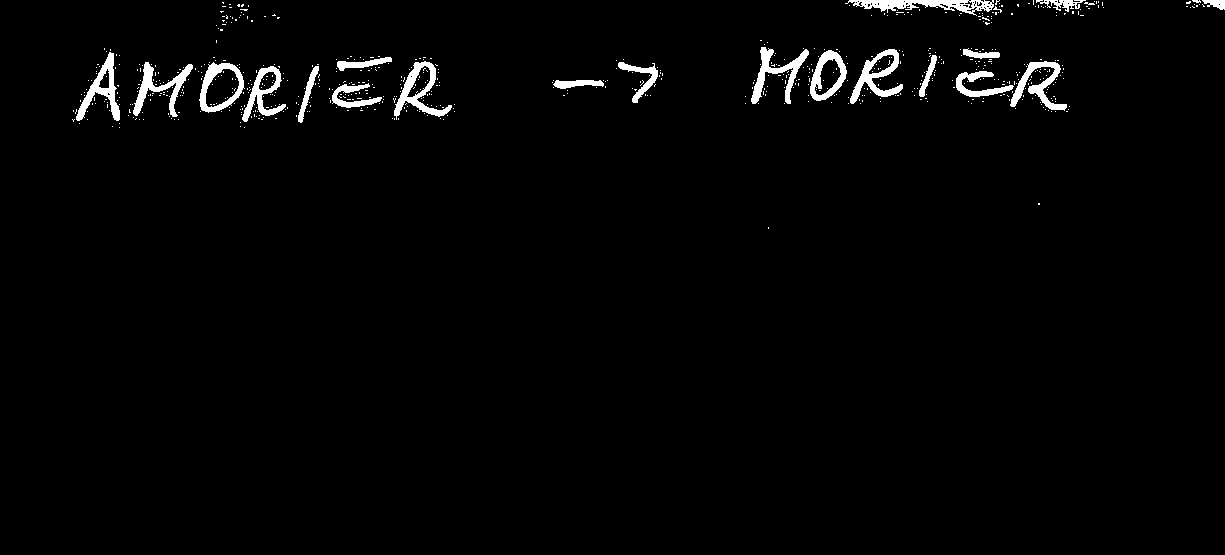 AMORIER -> MORIER